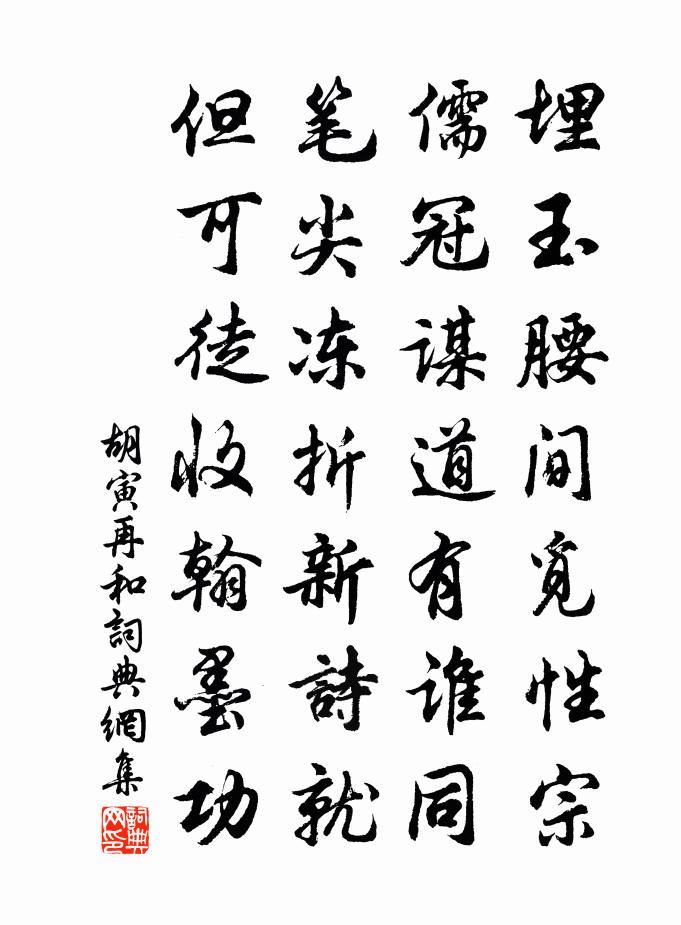 埋玉腰间觅性宗
儒冠谋道有谁同
笔尖冻折新詩就
但可徒收翰墨功
胡寅再和詞典網集
詞典网印